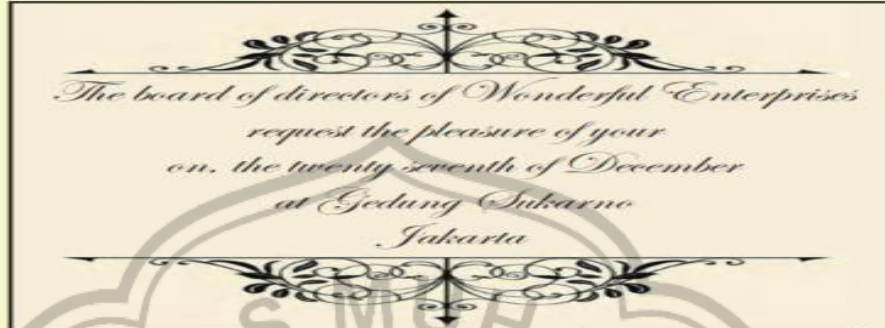 The board of directors of Wonderful Enterprises
request the pleasure of your
on, the twenty seventh of December
at Gedung Sukarno
Jakarta
S MUH